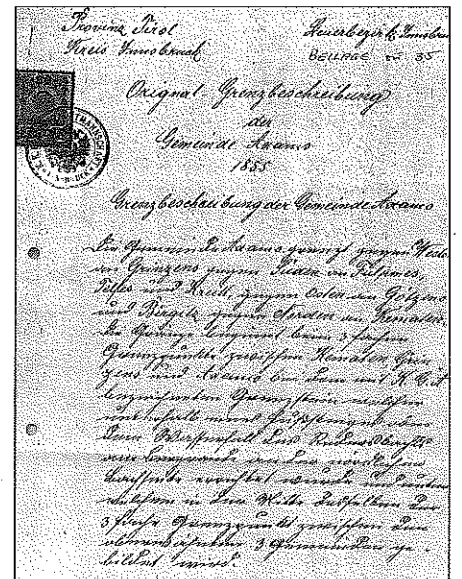 Provinz Tirol
Kreis Innsbruck
Steuerbezirk Innsbruck
BEILAGE zu 35
Orignal-Grenzbeschreibung
der
Gemeinde Axams
1855
Grenzbeschreibung der Gemeinde Axams
Die Gemeinde Axams grenzt gegen Westen
an Grinzens gegen Süden an Fulpmes,
Telfes und Kreit, gegen Osten an Götzens
und Birgitz gegen Norden an Kematen.
Die Grenze beginnt beim 3 fachen
Grenzpunkte zwischen Kematen, Grin-
zens und Axams bei dem mit K. G. A
bezeichneten Grenzstein welcher
unterhalb eines Fußsteiges ober
dem Wasserfall des
am an der nördlichen
errichtet wurde und
welchem in der Mitte desselben der
3 fache Grenzpunkt zwischen den
obenerwähnten 3 Gemeinden ge-
bildet wird.